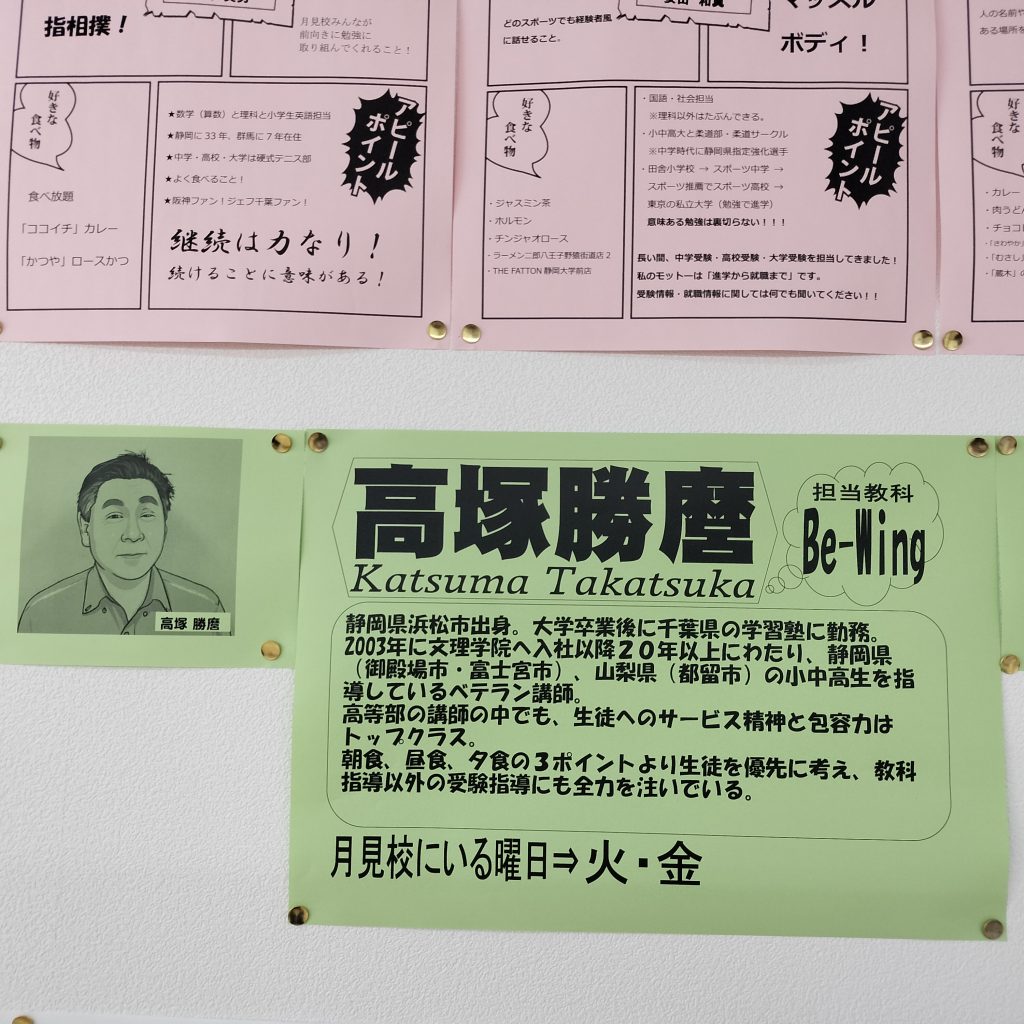 指相撲！
月見校みんなが
前向きに勉強に
取り組んでくれること！
好きな
食べ物
食べ放題
「ココイチ」カレー
「かつや」ロースかつ
アピール
ポイント
★数学（算数）と理科と小学生英語担当
★静岡に33年、群馬に7年在住
★中学・高校・大学は硬式テニス部
★よく食べること！
★阪神ファン！ジェフ千葉ファン！
継続は力なり！
続けることに意味がある！
どのスポーツでも経験者風
に話せること。
マッスル
ボディ！
好きな
食べ物
・ジャスミン茶
・ホルモン
・チンジャオロース
・ラーメン二郎八王子野猿街道店2
・THE FATTON 静岡大学前店
アピール
ポイント
・国語・社会担当
※理科以外はたぶんできる。
・小中高大と柔道部・柔道サークル
※中学時代に静岡県指定強化選手
・田舎小学校 → スポーツ中学 →
スポーツ推薦でスポーツ高校 →
東京の私立大学（勉強で進学）
意味ある勉強は裏切らない！！！
長い間、中学受験・高校受験・大学受験を担当してきました！
私のモットーは「進学から就職まで」です。
受験情報・就職情報に関しては何でも聞いてください！！
人の名前や
ある場所を
好きな
食べ物
・カレー
・肉うどん
・チョコレ
・「さわやか」
・「むさし」
・「蔵木」の
高塚 勝麿
高塚勝麿
Katsuma Takatsuka
担当教科
Be-Wing
静岡県浜松市出身。大学卒業後に千葉県の学習塾に勤務。
2003年に文理学院へ入社以降２０年以上にわたり、静岡県
（御殿場市・富士宮市）、山梨県（都留市）の小中高生を指
導しているベテラン講師。
高等部の講師の中でも、生徒へのサービス精神と包容力は
トップクラス。
朝食、昼食、夕食の３ポイントより生徒を優先に考え、教科
指導以外の受験指導にも全力を注いでいる。
月見校にいる曜日⇒火・金